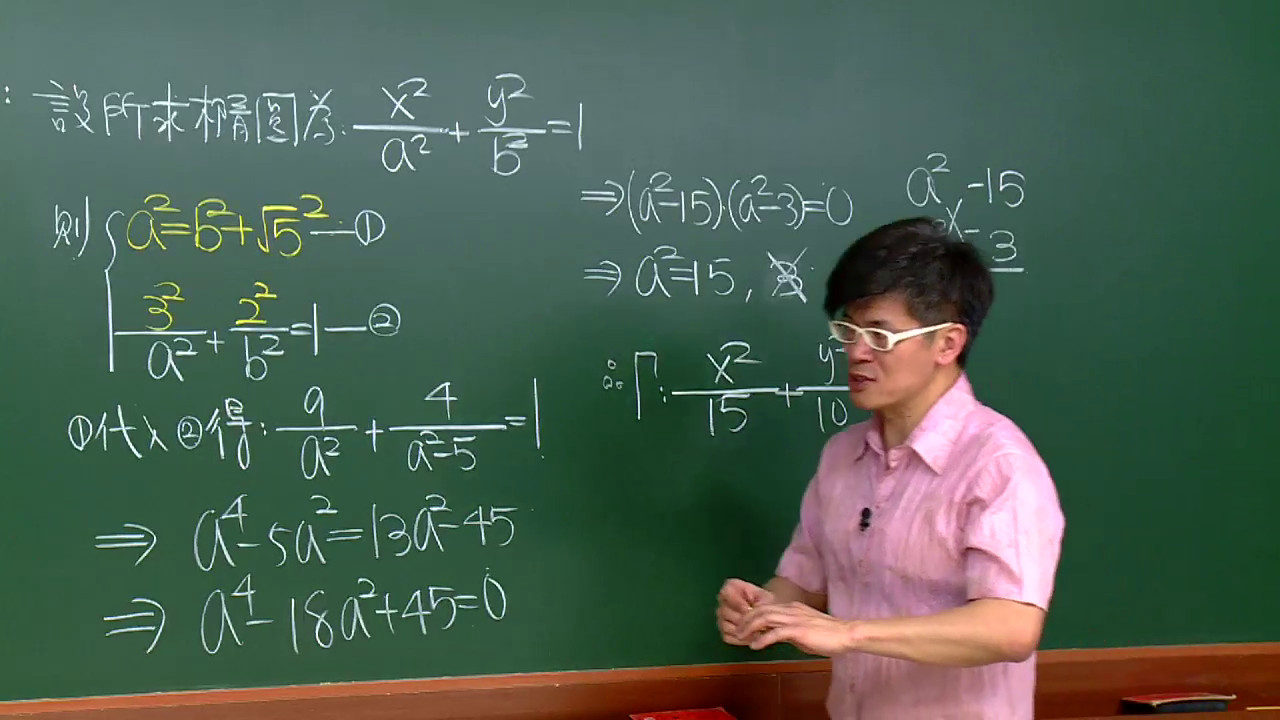 : 設所求橢圓為: x²/a² + y²/b² = 1
則 { a² = b² + √5² — ①
3²/a² + 2²/b² = 1 — ②
①代入②得: 9/a² + 4/(a²-5) = 1
⇒ a⁴ - 5a² = 13a² - 45
⇒ a⁴ - 18a² + 45 = 0
⇒ (a²-15)·(a²-3) = 0
⇒ a² = 15, 3
∴ Γ: x²/15 + y²/10
a² -15
- 3